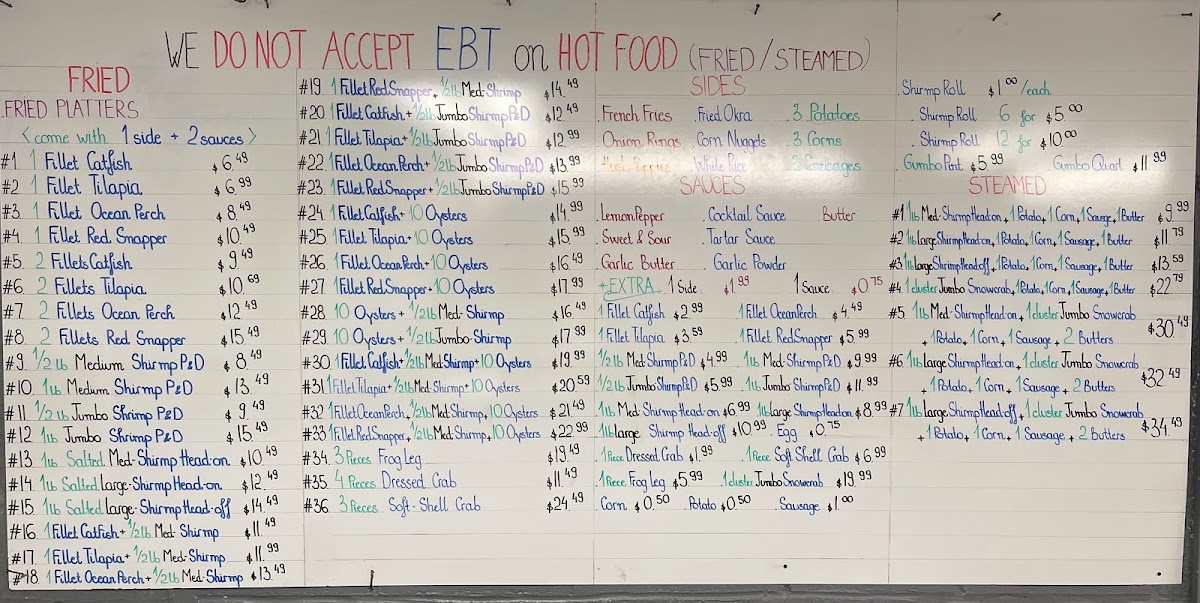 WE DO NOT ACCEPT EBT on HOT FOOD (FRIED/STEAMED)
FRIED
FRIED PLATTERS
<come with 1 side + 2 sauces>
#1 1 Fillet Catfish $6.49
#2 1 Fillet Tilapia $6.99
#3. 1 Fillet Ocean Perch $8.49
#4. 1 Fillet Red Snapper $10.49
#5. 2 Fillets Catfish $9.49
#6. 2 Fillets Tilapia $10.69
#7 2 Fillets Ocean Perch $12.49
#8. 2 Fillets Red Snapper $15.49
#9. 1/2 lb Medium Shirmp P&D $8.49
#10. 1lb Medium Shirmp P&D $13.49
#11. 1/2 lb Jumbo Shrimp P&D $9.49
#12 1lb Jumbo Shrimp P&D $15.49
#13. 1lb Salted Med-Shirmp Head-on $10.49
#14. 1lb Salted Large-Shirmp Head-on $12.49
#15. 1lb Salted Large-Shirmp Head-off $14.49
#16 1 Fillet Catfish + 1/2 lb Med-Shirmp $11.49
#17. 1 Fillet Tilapia + 1/2 lb Med-Shirmp $11.99
#18. 1 Fillet Ocean Perch + 1/2 lb Med-Shirmp $13.49
#19. 1 Fillet Red Snapper + 1/2 lb Med-Shirmp $14.49
#20. 1 Fillet Catfish + 1/2 lb Jumbo Shirmp P&D $12.49
#21. 1 Fillet Tilapia + 1/2 lb Jumbo Shirmp P&D $12.99
#22. 1 Fillet Ocean Perch + 1/2 lb Jumbo Shirmp P&D $13.99
#23. 1 Fillet Red Snapper + 1/2 lb Jumbo Shirmp P&D $15.99
#24. 1 Fillet Catfish + 10 Oysters $14.99
#25. 1 Fillet Tilapia + 10 Oysters $15.99
#26. 1 Fillet Ocean Perch + 10 Oysters $16.49
#27 1 Fillet Red Snapper + 10 Oysters $17.99
#28 10 Oysters + 1/2 lb Med-Shirmp $16.49
#29. 10 Oysters + 1/2 lb Jumbo-Shirmp $17.99
#30. 1 Fillet Catfish + 1/2 lb Med Shirmp + 10 Oysters $19.99
#31. 1 Fillet Tilapia + 1/2 lb Med-Shirmp + 10 Oysters $20.59
#32 1 Fillet Ocean Perch, 1/2 lb Med-Shirmp, 10 Oysters $21.49
#33 1 Fillet Red Snapper, 1/2 lb Med-Shirmp, 10 Oysters $22.99
#34. 3 Pieces Frog Leg $19.49
#35. 4 Pieces Dressed Crab $11.49
#36. 3 Pieces Soft-Shell Crab $24.49
SIDES
.French Fries .Fried Okra 3 Potatoes
.Onion Rings .Corn Nuggets 3 Corns
White Rice
SAUCES
.Lemon Pepper .Cocktail Sauce Butter
.Sweet & Sour .Tartar Sauce
.Garlic Butter .Garlic Powder
+EXTRA 1 Side $1.99 1 Sauce $0.75
1 Fillet Catfish $2.99 1 Fillet Ocean Perch $4.49
1 Fillet Tilapia $3.59 1 Fillet Red Snapper $5.99
1/2 lb Med Shirmp P&D $4.99 1lb Med Shirmp P&D $9.99
1/2 lb Jumbo Shirmp P&D $5.99 1lb Jumbo Shirmp P&D $11.99
1lb Med Shirmp Head-on $6.99 1lb large Shirmp Head on $8.99
1lb large Shirmp Head-off $10.99 Egg $0.75
1 Piece Dressed Crab $1.99 1 Piece Soft Shell Crab $6.99
1 Piece Frog leg $5.99 1 cluster Jumbo Snowcrab $19.99
Corn $0.50 Potato $0.50 Sausage $1.00
.Shirmp Roll $1.00/each.
.Shirmp Roll 6 for $5.00
.Shirmp Roll 12 for $10.00
Gumbo Pint $5.99 Gumbo Quart $11.99
STEAMED
#1 1lb Med-Shirmp Head on, 1 Potato, 1 Corn, 1 Sausage, 1 Butter $9.99
#2 1lb large Shirmp Head on, 1 Potato, 1 Corn, 1 Sausage, 1 Butter $11.79
#3 1lb large Shirmp Head-off, 1 Potato, 1 Corn, 1 Sausage, 1 Butter $13.59
#4 1 cluster Jumbo Snowcrab, 1 Potato, 1 Corn, 1 Sausage, 1 Butter $22.79
#5. 1lb Med-Shirmp Head on, 1 cluster Jumbo Snowcrab
, 1 Potato, 1 Corn, 1 Sausage, 2 Butters $30.49
#6 1lb large Shirmp Head on, 1 cluster Jumbo Snowcrab
, 1 Potato, 1 Corn, 1 Sausage, 2 Butters $32.49
#7 1lb large Shirmp Head-off, 1 cluster Jumbo Snowcrab
, 1 Potato, 1 Corn, 1 Sausage, 2 Butters $34.49